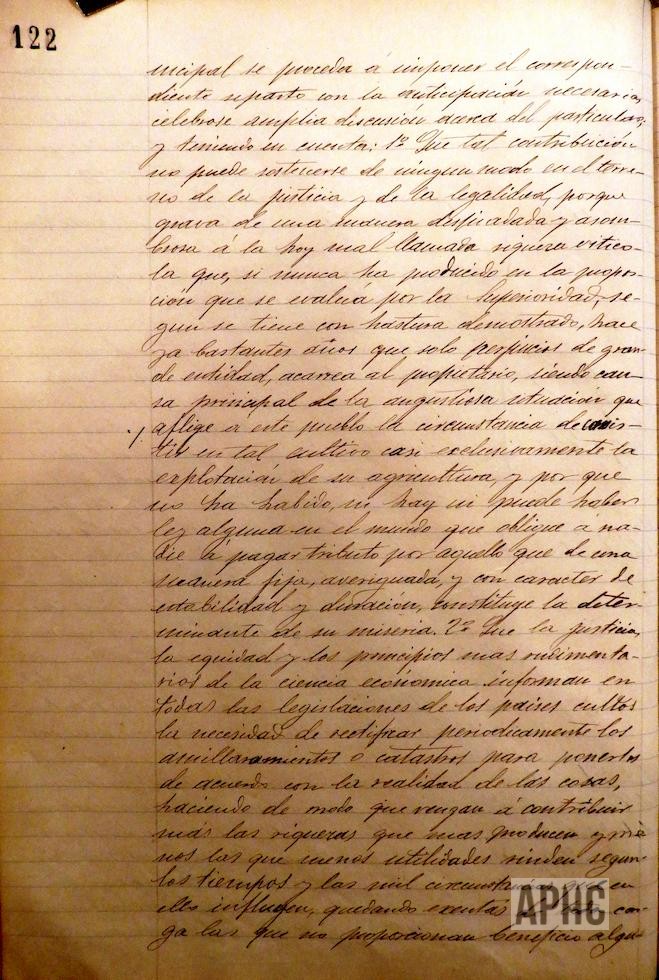 122
nicipal se proceda á imponer el correspon-
diente reparto con la anticipación necesaria,
celebrose amplia discusión acerca del particular,
y teniendo en cuenta: 1º Que tal contribución
no puede sostenerse de ningun modo en el terre-
no de la justicia y de la legalidad, porque
grava de una manera despiadada y asom-
brosa á la hoy mal llamada riqueza vitíco-
la que, si nunca ha producido en la propor-
ción que se evalúa por la Superioridad, se-
gun se tiene con hartura demostrado, hace
ya bastantes años que solo perjuicios de gran-
de entidad, acarrea al propietario, siendo cau-
sa principal de la angustiosa situación que
aflige a este pueblo la circunstancia de consis-
tir en tal cultivo casi exclusivamente la
explotación de su agricultura, y por que
no ha habido, ni hay ni puede haber
ley alguna en el mundo que obligue a na-
die a pagar tributo por aquello que de una
manera fija, averiguada, y con caracter de
estabilidad y duración, constituye la deter-
minante de su miseria. 2º Que la justicia,
la equidad y los principios mas rudimenta-
rios de la ciencia económica informan en
todas las legislaciones de los paises cultos
la necesidad de rectificar periodicamente los
amillaramientos o catastros para ponerlos
de acuerdo con la realidad de las cosas,
haciendo de modo que vengan á contribuir
mas las riquezas que mas producen y me-
nos las que menos utilidades rinden segun
los tiempos y las mil circunstancias que en
ello influyen, quedando exentas de tal car-
ga las que no proporcionan beneficio algu-
APHC